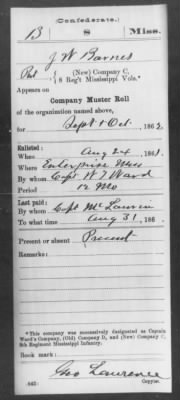 (Confederate.)
B 8 Miss.
J W Barnes
Pvt { (New) Company C,
8 Reg't Mississippi Vols.*
Appears on
Company Muster Roll
of the organization named above,
for Sept & Oct, 186
Enlisted:
When Aug 24, 1861.
Where Enterprise Miss
By whom Capt W T Ward
Period 12 Mo
Last paid:
By whom Capt McLaurin
To what time Aug 31, 186
Present or absent Present
Remarks:
*This company was successively designated as Captain
Ward's Company, (Old) Company D, and (New) Company C,
8th Regiment Mississippi Infantry.
Book mark:
(642) Geo Lawrence
Copyist.